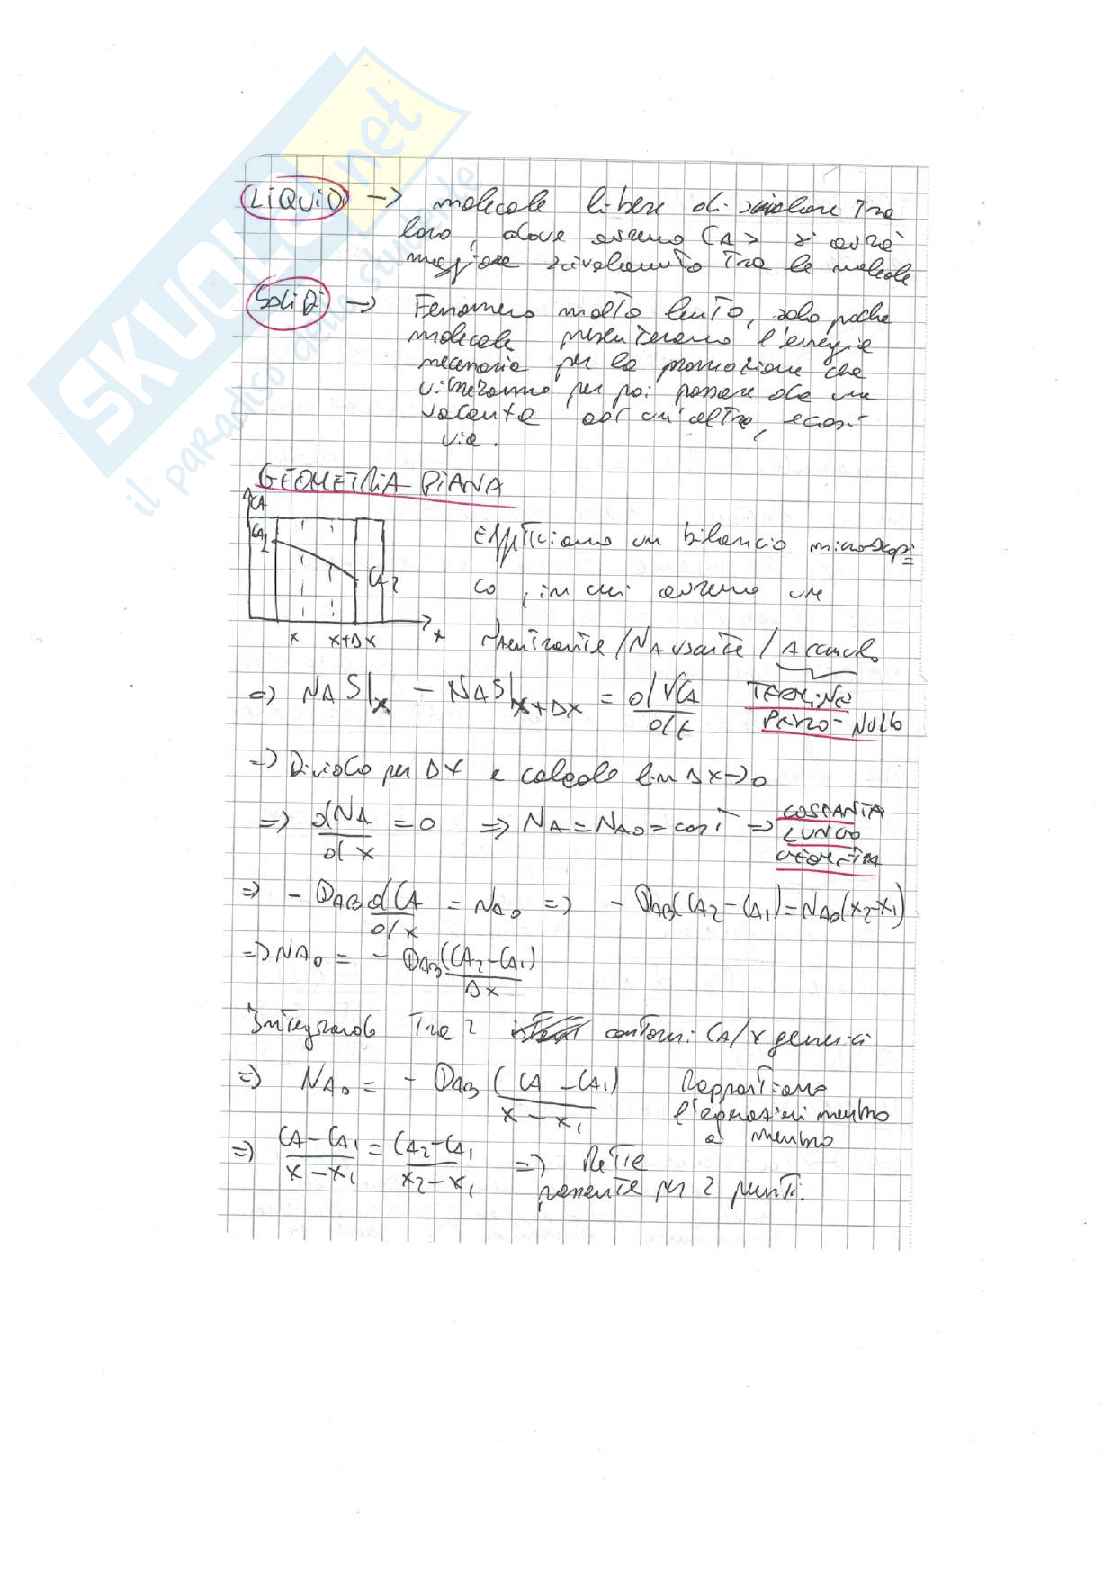 SKUOLA.net
il paradiso dello studente
LIQUID -> molecole libere di scivolare tra
loro, dove avremo CA > si avrà
maggiore scivolamento tra le molecole
SOLID -> Fenomeno molto lento, solo poche
molecole presenteranno l'energia
necessaria per la promozione che
vibreranno per poi passare da una
vacante ad un'altra, e così
via.
GEOMETRIA PIANA
CA
CA1
CA2
x x+Δx x
Effettuiamo un bilancio microscopi=
co, in cui avremo un
NA entrante / NA uscente / Accumulo
=> NA S|x - NA S|x+Δx = d VCA / dt TERMINE
PERZO- NULLO
=> Divido per Δx e calcolo lim Δx->0
=> dNA/dx = 0 => NA = NA0 = cost => COSTANTE
LUNGO
GEOMETRIA
=> - DAB dCA/dx = NA0 => - DAB(CA2 - CA1) = NA0(x2-x1)
=> NA0 = - DAB(CA2-CA1)/Δx
Integrando tra 2 contorni CA/x generici
=> NA0 = - DAB (CA - CA1)/(x - x1) Rapportiamo
l'equazioni membro
a membro
=> (CA - CA1)/(x - x1) = (CA2-CA1)/(x2-x1) => Retta
passante per 2 punti.